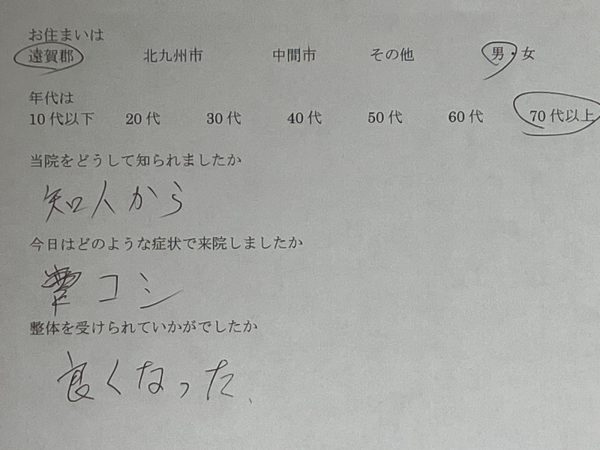 お住まいは
遠賀郡 北九州市 中間市 その他 男・女
年代は
10代以下 20代 30代 40代 50代 60代 70代以上
当院をどうして知られましたか
知人から
今日はどのような症状で来院しましたか
コシ
整体を受けられていかがでしたか
良くなった、